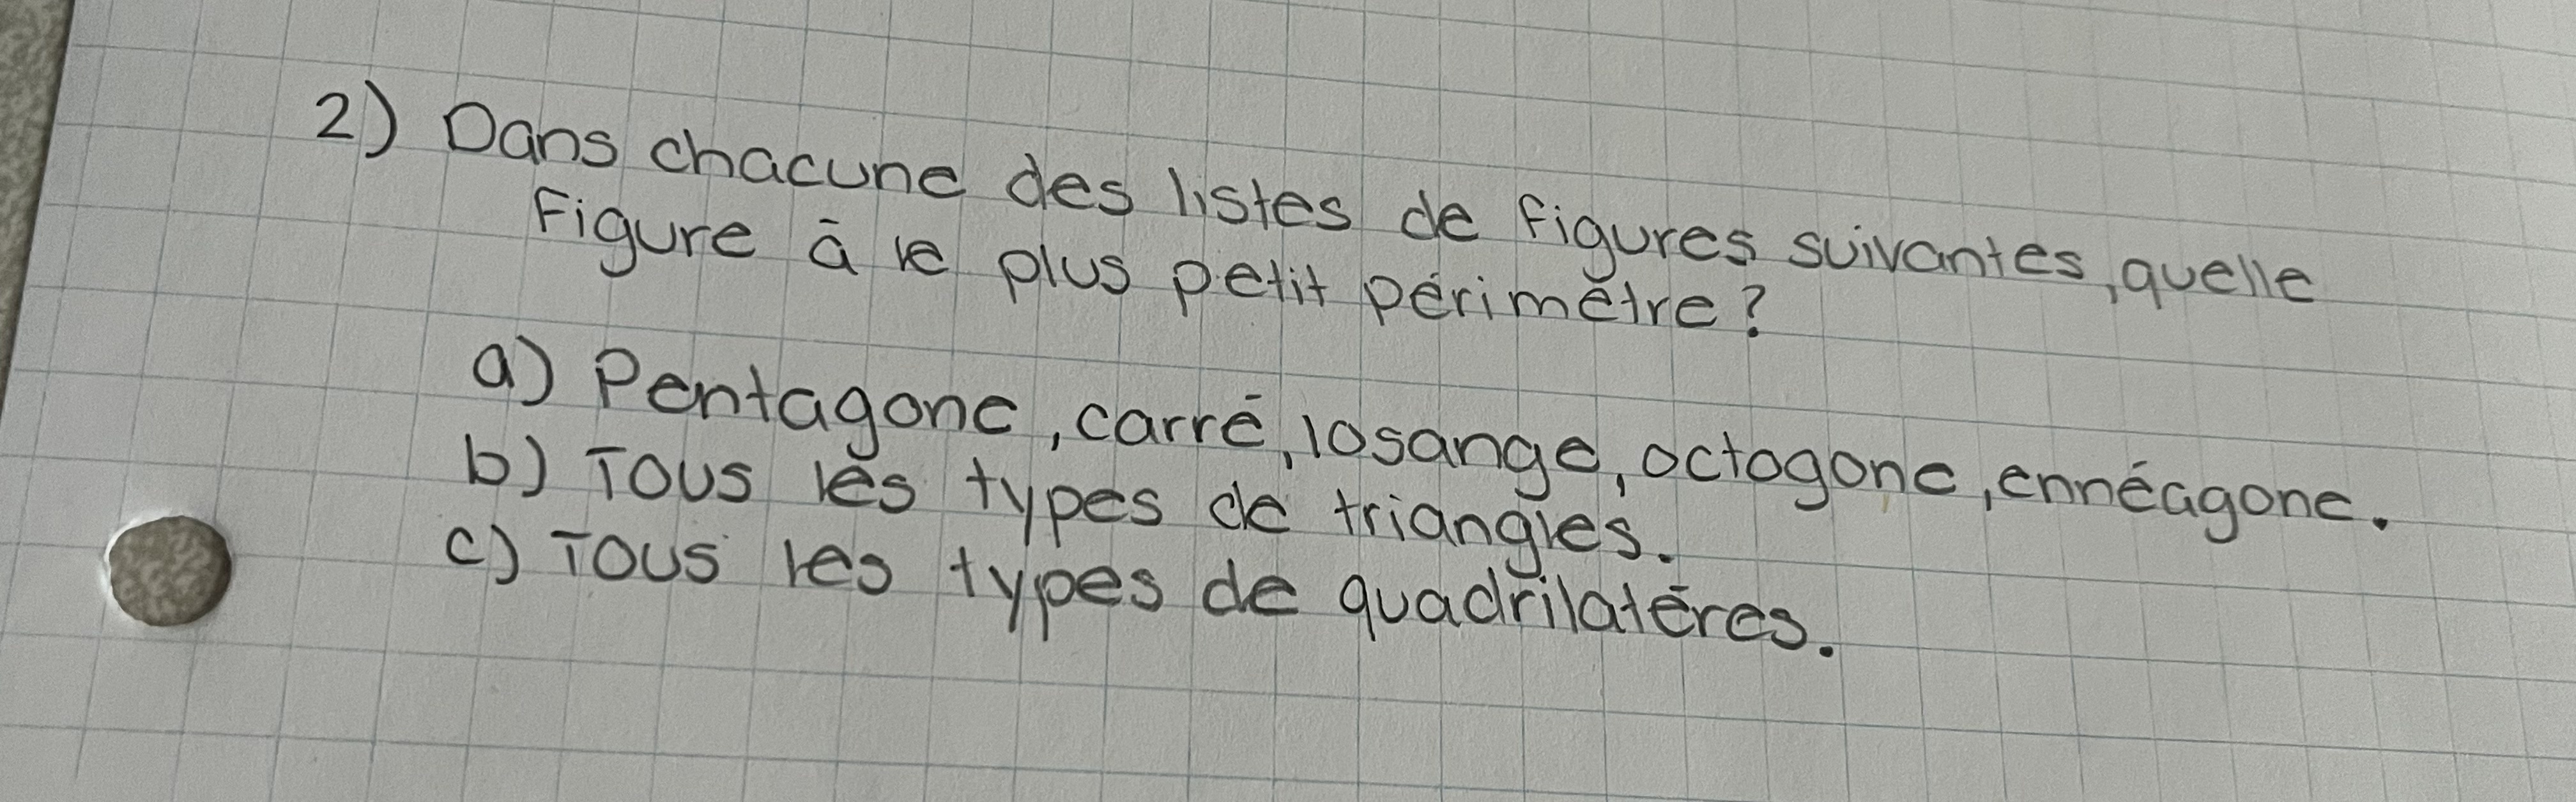 2) Dans chacune des listes de figures suivantes, quelle
Figure à le plus petit périmètre?
a) Pentagone, carré, losange, octogone, ennéagone.
b) Tous les types de triangles.
c) Tous les types de quadrilatères.